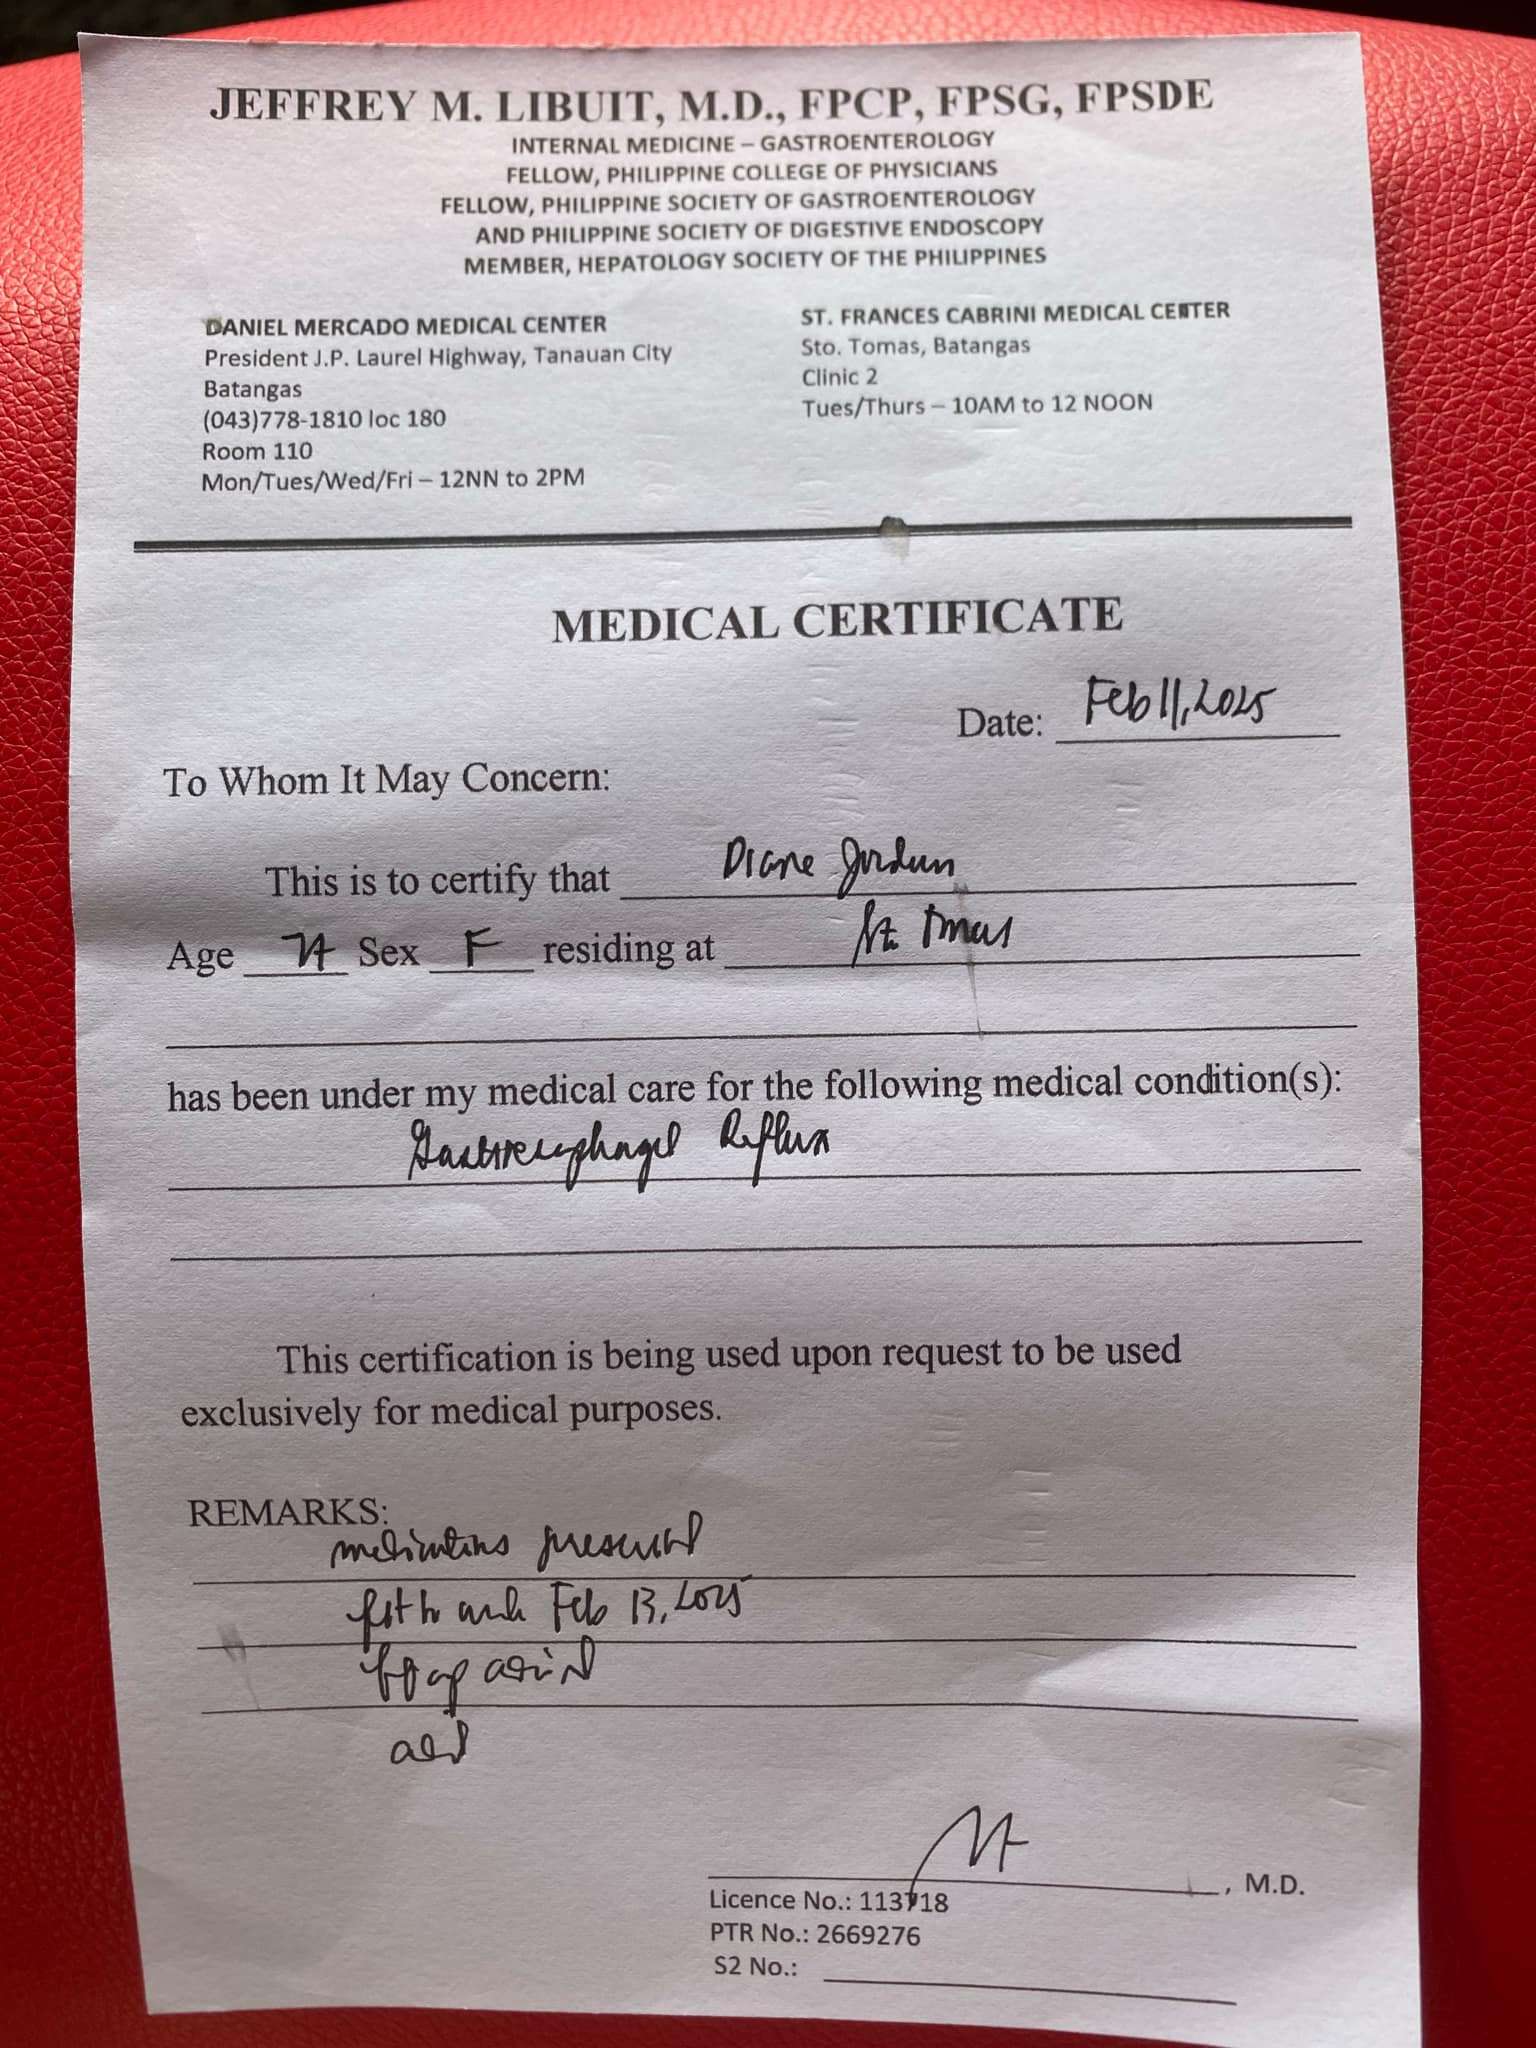 JEFFREY M. LIBUIT, M.D., FPCP, FPSG, FPSDE
INTERNAL MEDICINE – GASTROENTEROLOGY
FELLOW, PHILIPPINE COLLEGE OF PHYSICIANS
FELLOW, PHILIPPINE SOCIETY OF GASTROENTEROLOGY
AND PHILIPPINE SOCIETY OF DIGESTIVE ENDOSCOPY
MEMBER, HEPATOLOGY SOCIETY OF THE PHILIPPINES
DANIEL MERCADO MEDICAL CENTER
President J.P. Laurel Highway, Tanauan City
Batangas
(043)778-1810 loc 180
Room 110
Mon/Tues/Wed/Fri – 12NN to 2PM
ST. FRANCES CABRINI MEDICAL CENTER
Sto. Tomas, Batangas
Clinic 2
Tues/Thurs – 10AM to 12 NOON
MEDICAL CERTIFICATE
Date: Feb 11, 2025
To Whom It May Concern:
This is to certify that Diane Jordan
Age Sex F residing at Sto Tomas
has been under my medical care for the following medical condition(s):
Gastroesophageal Reflux
This certification is being used upon request to be used
exclusively for medical purposes.
REMARKS:
medications
Feb 13, 2025
, M.D.
Licence No.: 113718
PTR No.: 2669276
S2 No.: